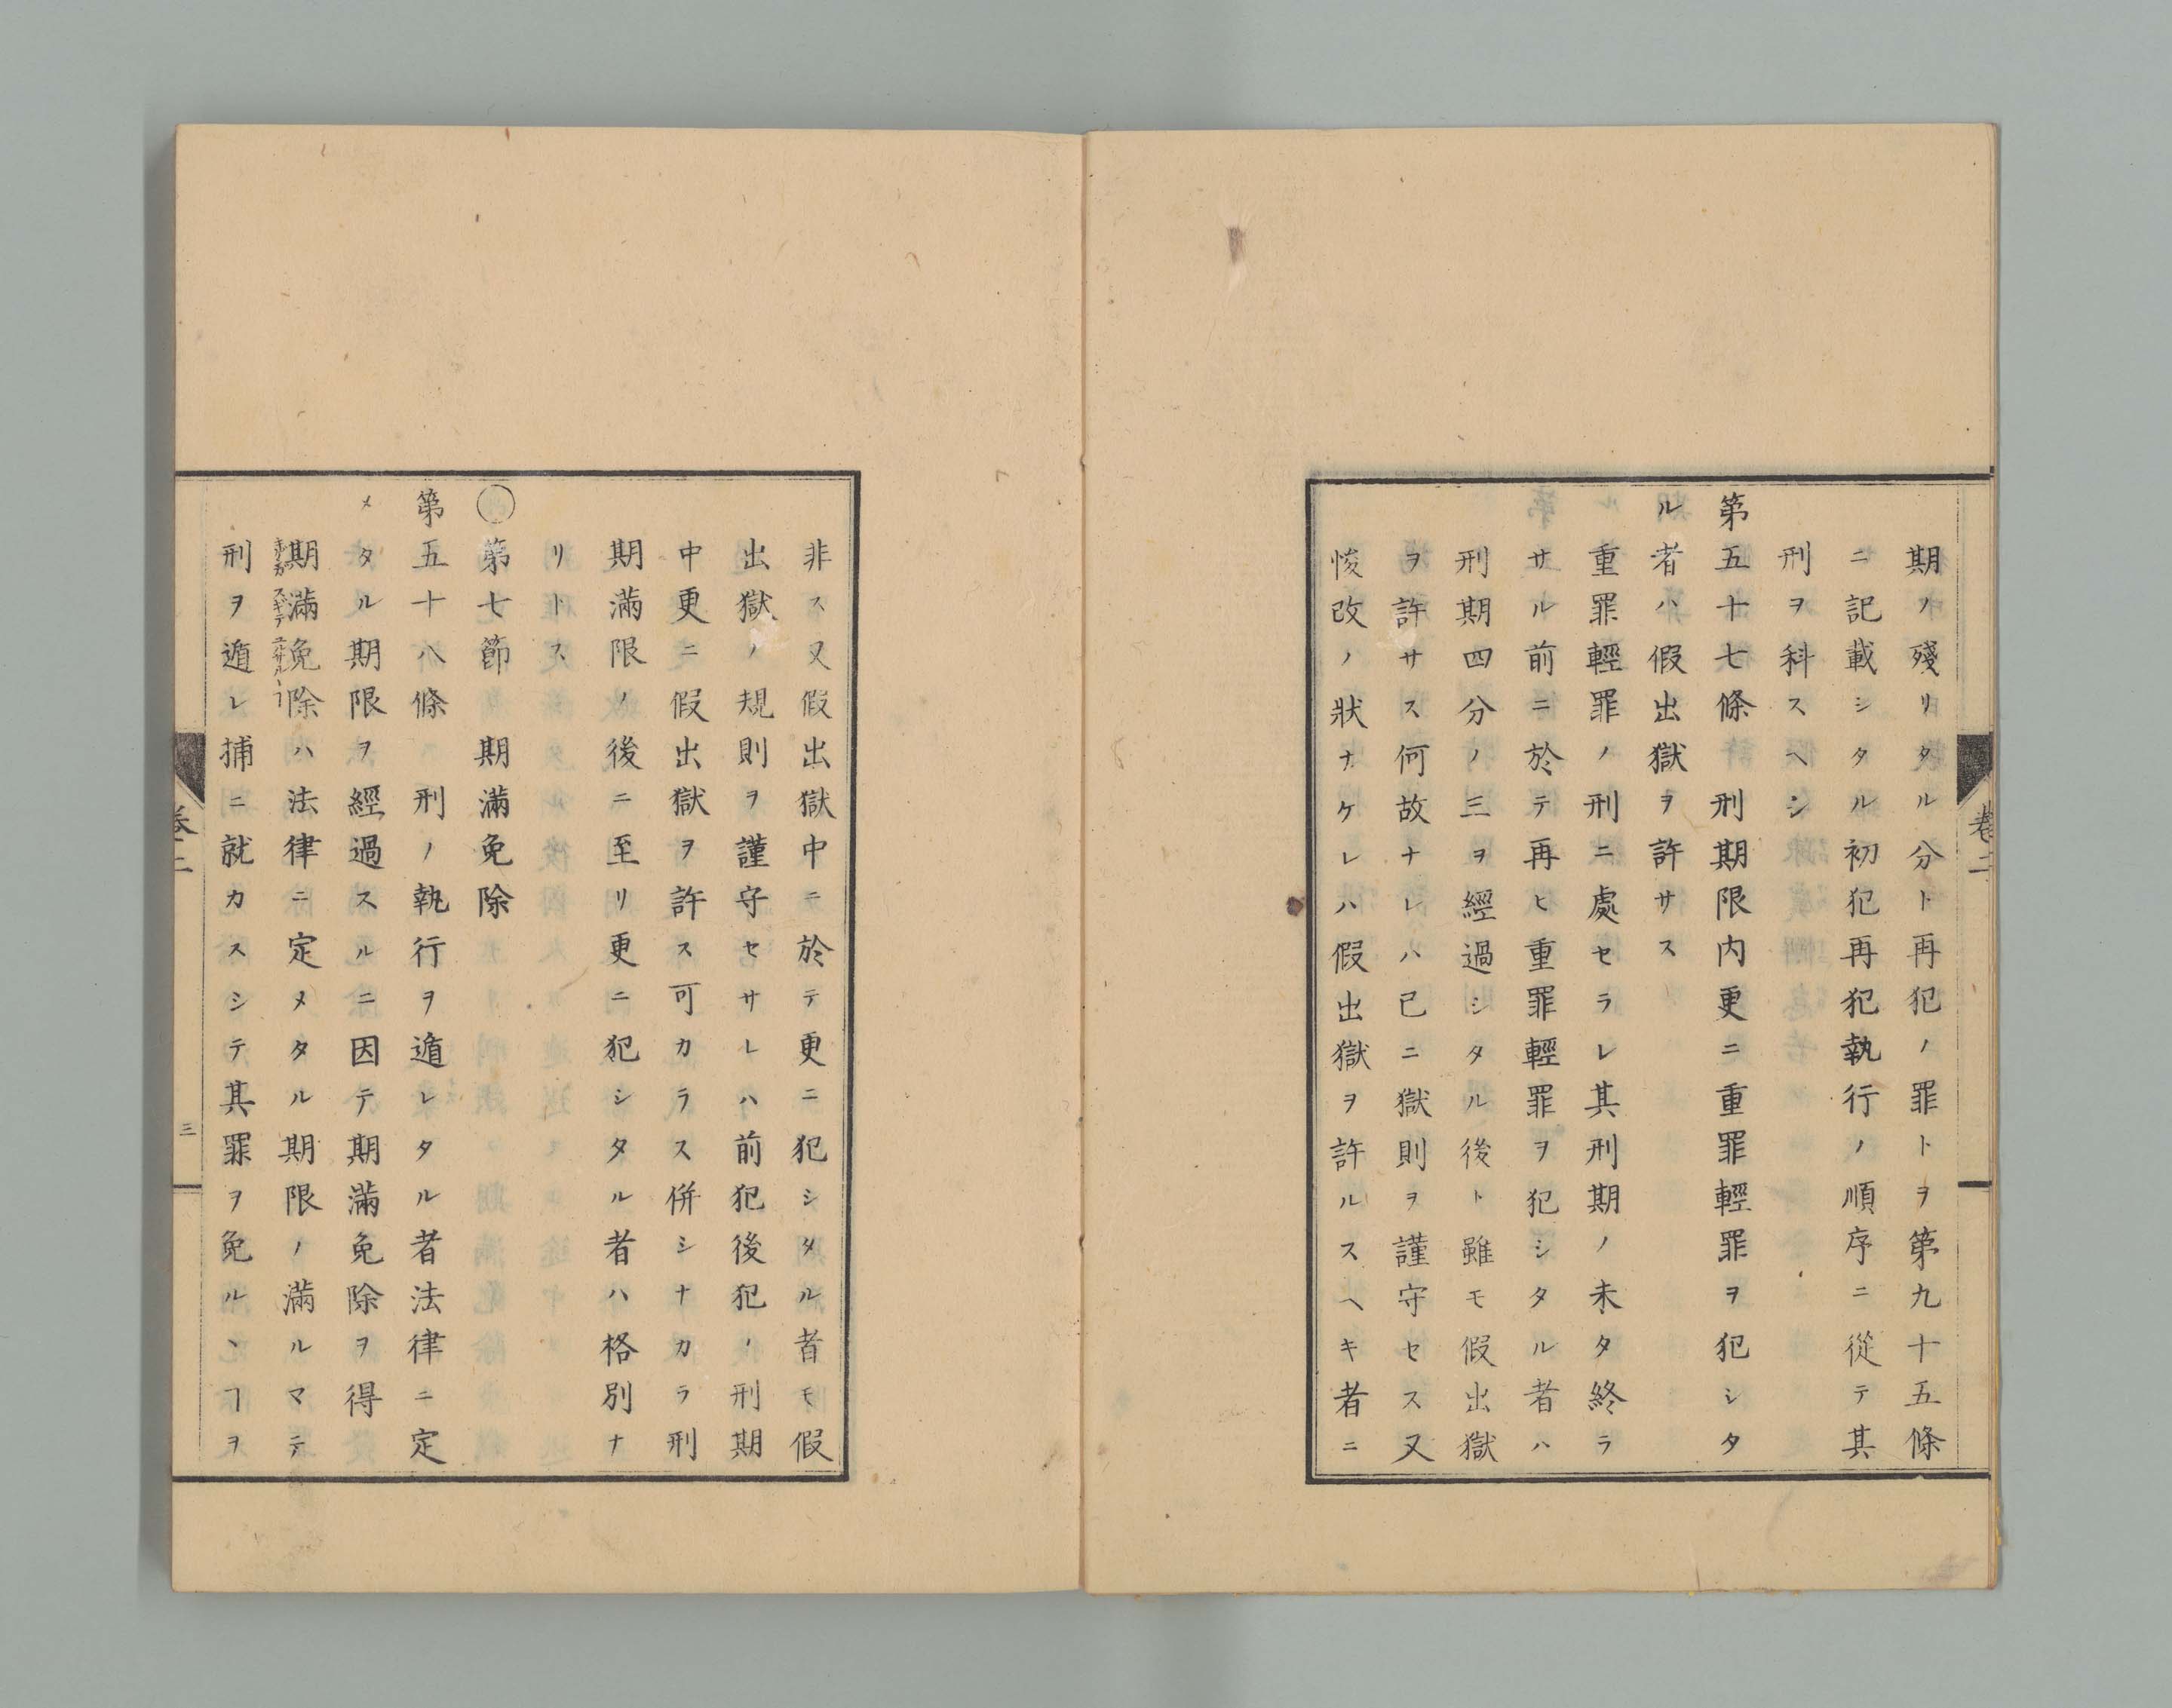 期ノ殘リタル分ト再犯ノ罪トヲ第九十五條
ニ記載シタル初犯再犯執行ノ順序ニ從テ其
刑ヲ科スヘシ
第五十七條 刑期限内更ニ重罪輕罪ヲ犯シタ
ル者ハ假出獄ヲ許サス
重罪輕罪ノ刑ニ處セラレ其刑期ノ未タ終ラ
サル前ニ於テ再ヒ重罪輕罪ヲ犯シタル者ハ
刑期四分ノ三ヲ經過シタル後ト雖モ假出獄
ヲ許サス何故ナレハ已ニ獄則ヲ謹守セス又
悛改ノ狀ナケレハ假出獄ヲ許ルスヘキ者ニ
卷二
非ス又假出獄中ニ於テ更ニ犯シタル者モ假
出獄ノ規則ヲ謹守セサレハ前犯後犯ノ刑期
中更ニ假出獄ヲ許ス可カラス併シナカラ刑
期滿限ノ後ニ至リ更ニ犯シタル者ハ格別ナ
リトス
○第七節 期滿免除
第五十八條 刑ノ執行ヲ遁レタル者法律ニ定
メタル期限ヲ經過スルニ因テ期滿免除ヲ得
期滿免除ハ法律ニ定メタル期限ノ滿ルマテ
刑ヲ遁レ捕ニ就カスシテ其罪ヲ免ルヽヿヲ
卷二
三